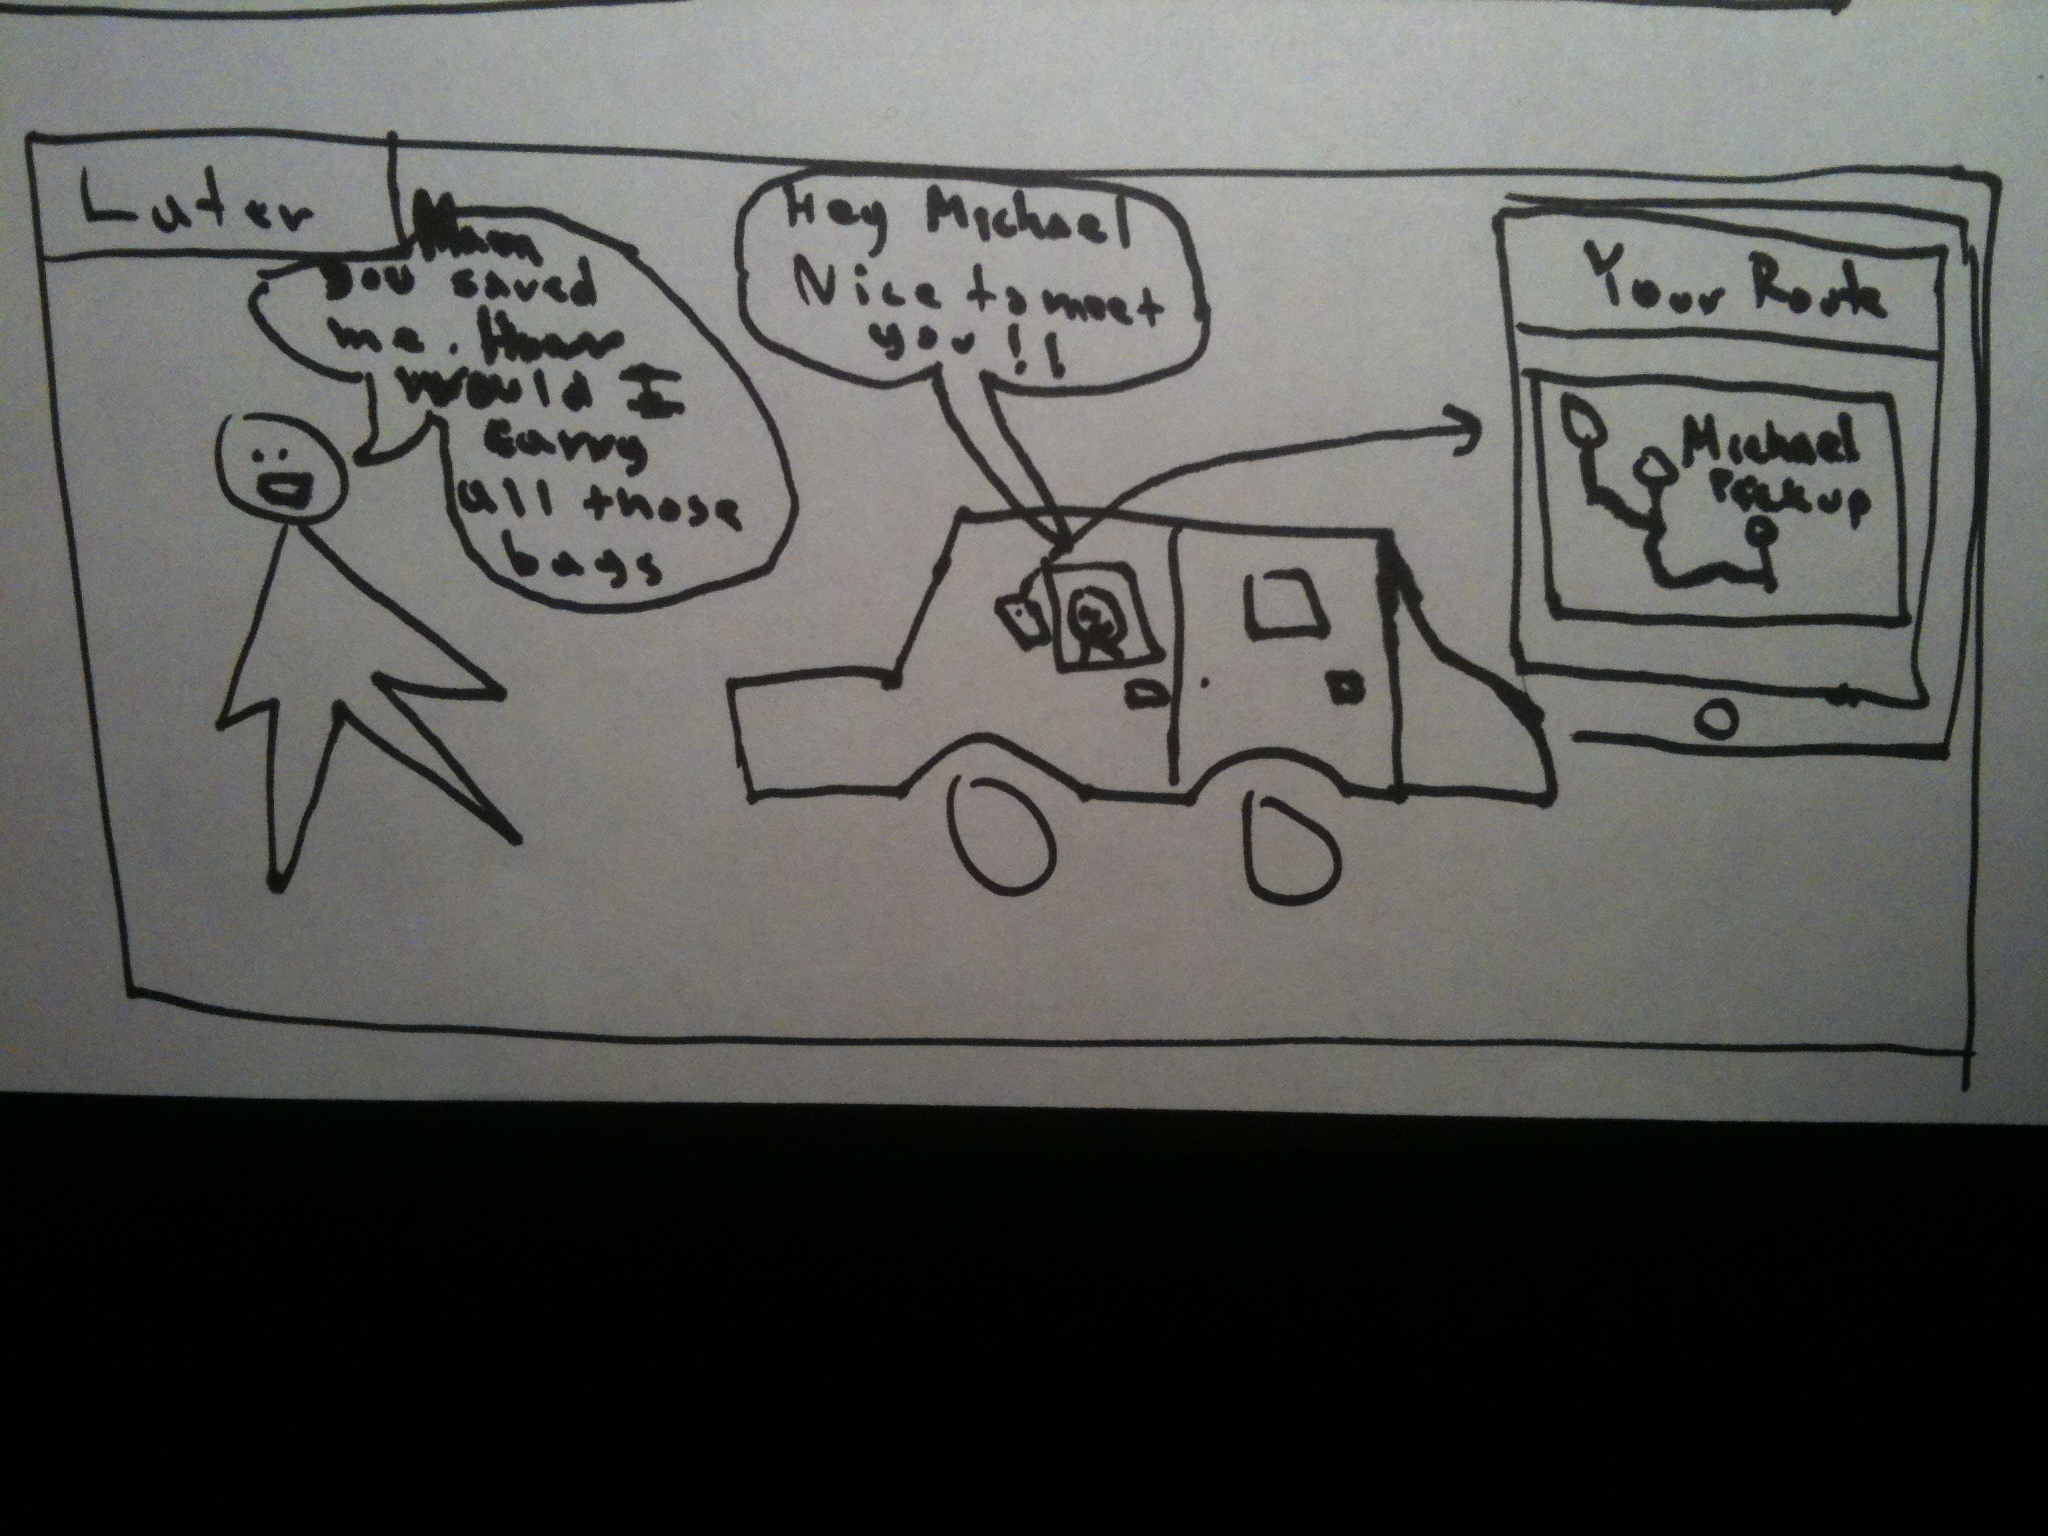 Later
Mann
you saved
me. How
would I
carry
all those
bags
Hey Michael
Nice to meet
you!!
Your Route
Michael
Pick up